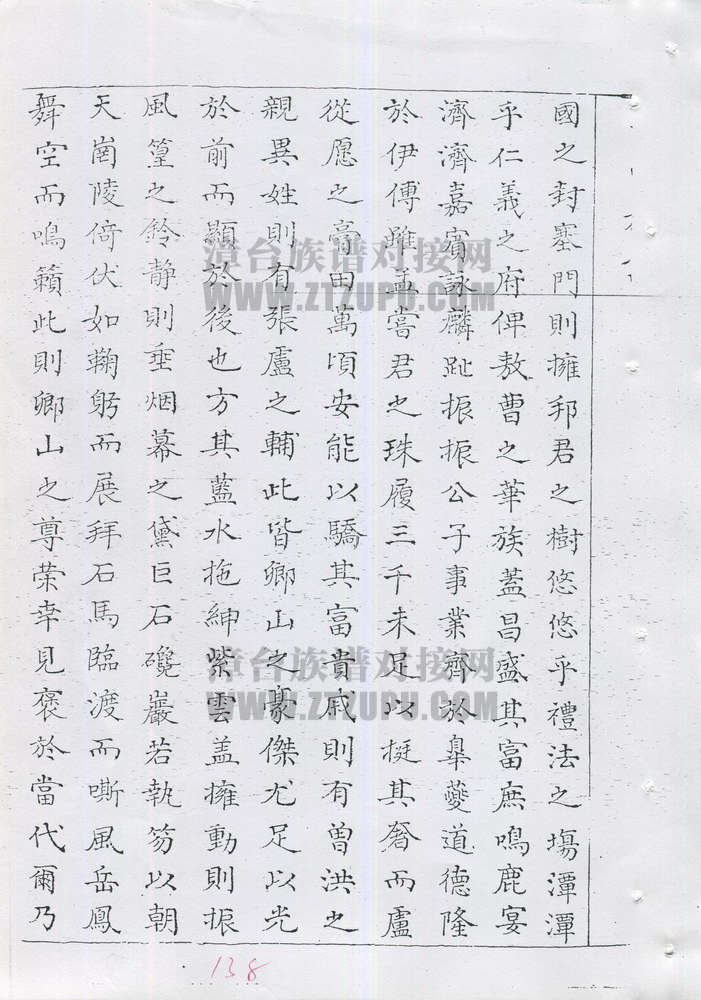 國之封塞門則擁邦君之樹悠悠乎禮法之塲潭潭
乎仁義之府俾敖曹之華族蓋昌盛其富庶鳴鹿宴
濟濟嘉賓詠麟趾振振公子事業齊於臯夔道德隆
於伊傅雖孟嘗君之珠履三千未足以挺其奢而盧
從愿之膏田萬頃安能以驕其富貴戚則有曽洪之
親異姓則有張盧之輔此皆鄉山之豪傑尤足以光
於前而顯於後也方其藍水拖紳紫雲盖擁動則振
風篁之鈴静則垂烟幕之黛巨石巉巖若執笏以朝
天崗陵倚伏如鞠躬而展拜石馬臨渡而嘶風岳鳳
舞空而鳴籟此則鄉山之尊荣幸見褒於當代爾乃
漳台族谱对接网
WWW.ZTZUPU.COM
漳台族谱对接网
WWW.ZTZUPU.COM
138